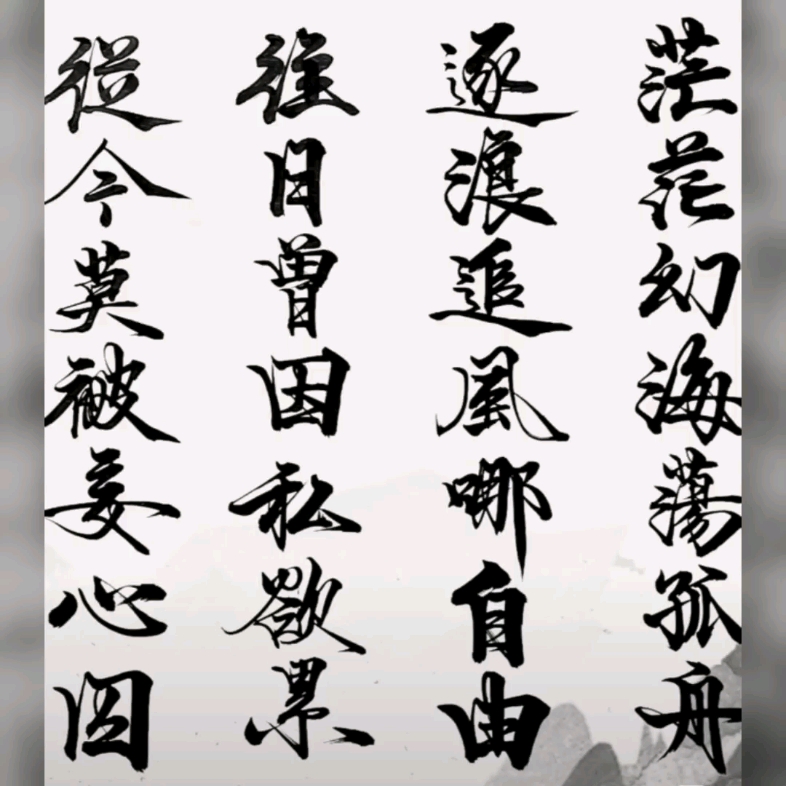 茫茫幻海蕩孤舟
逐浪追風哪自由
往日曾因私欲累
從今莫被妄心囚